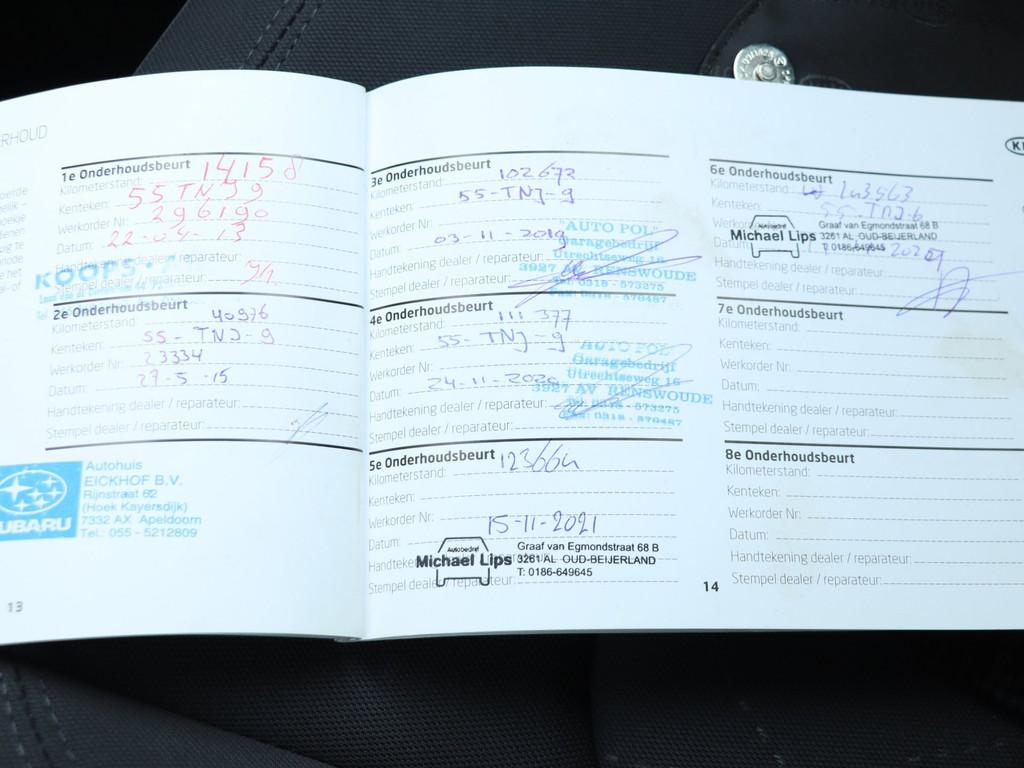 RHOUD
1e Onderhoudsbeurt 14158
Kilometerstand:
Kenteken: 55 TNJ 9
Werkorder Nr: 296190
Datum: 22-04-13
Handtekening dealer / reparateur:
Stempel dealer / reparateur:
KOOPS
2e Onderhoudsbeurt
Kilometerstand: 40976
Kenteken: 55-TNJ-9
Werkorder Nr: 23334
Datum: 27-5-15
Handtekening dealer / reparateur:
Stempel dealer / reparateur:
UBARU
Autohuis
EICKHOF B.V.
Rijnstraat 62
(Hoek Kayersdijk)
7332 AX Apeldoorn
Tel.: 055 - 5212809
13
3e Onderhoudsbeurt
Kilometerstand: 102672
Kenteken: 55-TNJ-9
Werkorder Nr:
Datum: 03-11-2019
Handtekening dealer / reparateur:
Stempel dealer / reparateur:
"AUTO POL"
Garagebedrijf
Utrechtseweg 16
3927 AV RENSWOUDE
Tel: 0318 - 573275
Fax: 0318 - 570487
4e Onderhoudsbeurt
Kilometerstand: 111 377
Kenteken: 55-TNJ-9
Werkorder Nr:
Datum: 24-11-2020
Handtekening dealer / reparateur:
Stempel dealer / reparateur:
"AUTO POL"
Garagebedrijf
Utrechtseweg 16
3927 AV RENSWOUDE
Tel: 0318 - 573275
Fax: 0318 - 570487
5e Onderhoudsbeurt
Kilometerstand:
Kenteken:
Werkorder Nr:
Datum: 15-11-2021
Handtekening dealer / reparateur:
Stempel dealer / reparateur:
Autobedrijf
Michael Lips
Graaf van Egmondstraat 68 B
3261 AL OUD-BEIJERLAND
T: 0186-649645
14
6e Onderhoudsbeurt
Kilometerstand:
Kenteken:
Werkorder
Datum:
Handtekening dealer / reparateur:
Stempel dealer / reparateur:
Autobedrijf
Michael Lips
Graaf van Egmondstraat 68 B
3261 AL OUD-BEIJERLAND
T: 0186-649645
7e Onderhoudsbeurt
Kilometerstand:
Kenteken:
Werkorder Nr:
Datum:
Handtekening dealer / reparateur:
Stempel dealer / reparateur:
8e Onderhoudsbeurt
Kilometerstand:
Kenteken:
Werkorder Nr:
Datum:
Handtekening dealer / reparateur:
Stempel dealer / reparateur: